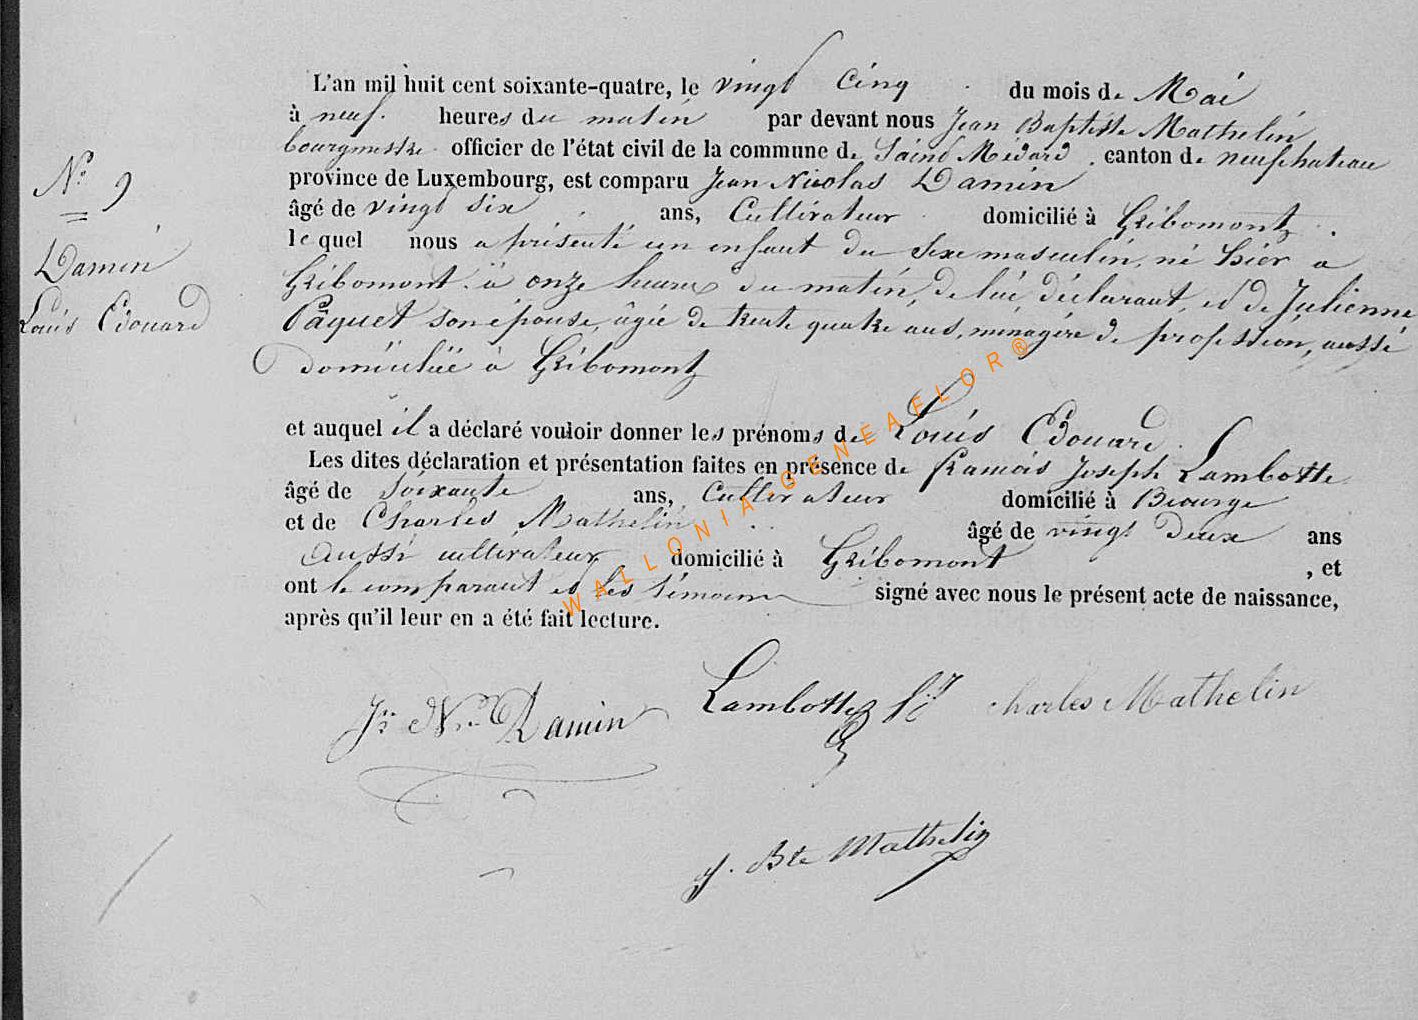 L'an mil huit cent soixante-quatre, le vingt Cinq du mois de Mai
à neuf heures du matin par devant nous Jean Baptiste Mathelin
bourgmestre officier de l'état civil de la commune de Saint Médard, canton de neufchateau
province de Luxembourg, est comparu Jean Nicolas Damin
âgé de vingt six ans, Cultivateur domicilié à Gribomont
le quel nous a présenté un enfant du sexe masculin, né hier a
Gribomont à onze heures du matin, de lui déclarant, et de Julienne
Pâquet son épouse, âgée de trente quatre ans, ménagère de profession, aussi
domiciliée à Gribomont
et auquel il a déclaré vouloir donner les prénoms de Louis Edouard.
Les dites déclaration et présentation faites en présence de Framois Joseph Lambotte
âgé de Soixante ans, Cultivateur domicilié à Biourge
et de Charles Mathelin âgé de vingt deux ans
aussi cultivateur domicilié à Gribomont, et
ont le comparant et les témoins signé avec nous le présent acte de naissance,
après qu'il leur en a été fait lecture.
N° 9
Damin
Louis Edouard
Jn Ns Damin
Lambotte f. j
charles Mathelin
J. Bte Mathelin
WALLONIA-GENEAFLOR®